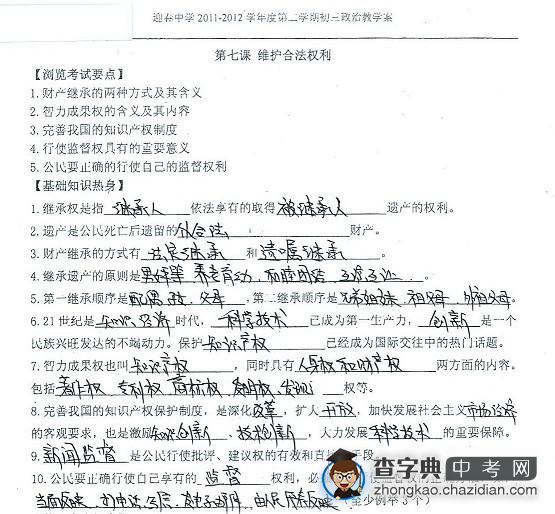 迎春中学 2011-2012 学年度第二学期初三政治教学案
第七课 维护合法权利
【浏览考试要点】
1.财产继承的两种方式及其含义
2.智力成果权的含义及其内容
3.完善我国的知识产权制度
4.行使监督权具有的重要意义
5.公民要正确的行使自己的监督权利
【基础知识热身】
1.继承权是指 继承人 依法享有的取得 被继承人 遗产的权利。
2.遗产是公民死亡后遗留的 个人合法 财产。
3.财产继承的方式有 法定继承 和 遗嘱继承 。
4.继承遗产的原则是 男女平等 养老育幼, 和睦团结 互谅互让 。
5.第一继承顺序是 配偶, 子女, 父母 ,第二继承顺序是 兄弟姐妹, 祖父母, 外祖父母。
6.21 世纪是 知识 经济 时代, 科学技术 已成为第一生产力, 创新 是一个
民族兴旺发达的不竭动力。保护 知识产权 已经成为国际交往中的热门话题。
7.智力成果权也叫 知识产权 ,同时具有 人身权和财产权 两方面的内容。
包括 著作权, 专利权, 商标权, 发明权, 发现 权等。
8.完善我国的知识产权保护制度,是深化 改革 ,扩大 开放 ,加快发展社会主义 市场经济
的客观要求,也是激励 知识创新 、 技术创新 ,大力发展 科学技术 的重要保障。
9. 新闻监督 是公民行使批评、建议权的有效和直接手段。
10.公民要正确行使自己享有的 监督 权利,必
当面反映 电话 (至少例举 3 个)
查字典 中考网
zhongkao.chazidian.com